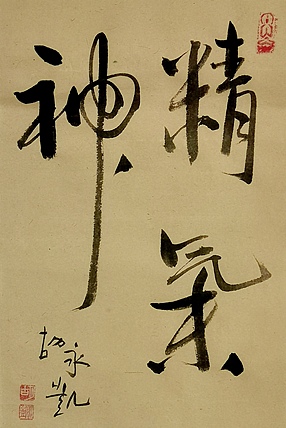 精氣
神
胡詠凱